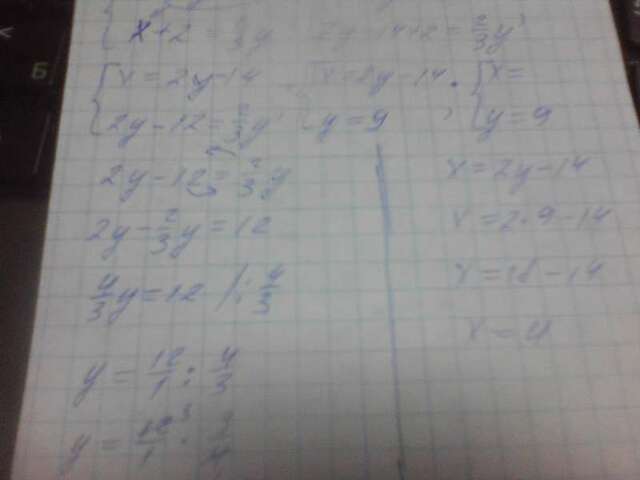 x+2 = 2/3 y   2y-14+2 = 2/3 y
{ x = 2y-14   x=2y-14   { x=
{ 2y-12 = 2/3 y   { y=9   { y=9
2y-12 = 2/3 y
2y - 2/3 y = 12
4/3 y = 12 /: 4/3
y = 12/1 : 4/3
y =
x=2y-14
x=2·9-14
x=18-14
x=4
Б